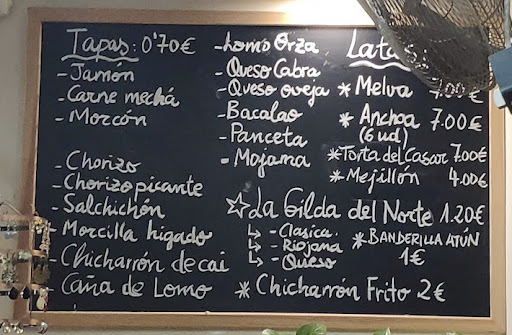 Tapas: 0'70€
- Jamón
- Carne mechá
- Morcón
- Chorizo
- Chorizo picante
- Salchichón
- Morcilla higado
- Chicharrón de cai
- Caña de Lomo
- Lomo Orza
- Queso Cabra
- Queso oveja
- Bacalao
- Panceta
- Mojama
Latas:
* Melva 7.00€
* Anchoa 7.00€
(6 ud)
* Torta del Casar 7.00€
* Mejillón 4.00€
☆ La Gilda del Norte 1.20€
↳ - Clasica
↳ - Riojana
↳ - Queso
* BANDERILLA ATÚN
1€
* Chicharrón Frito 2€